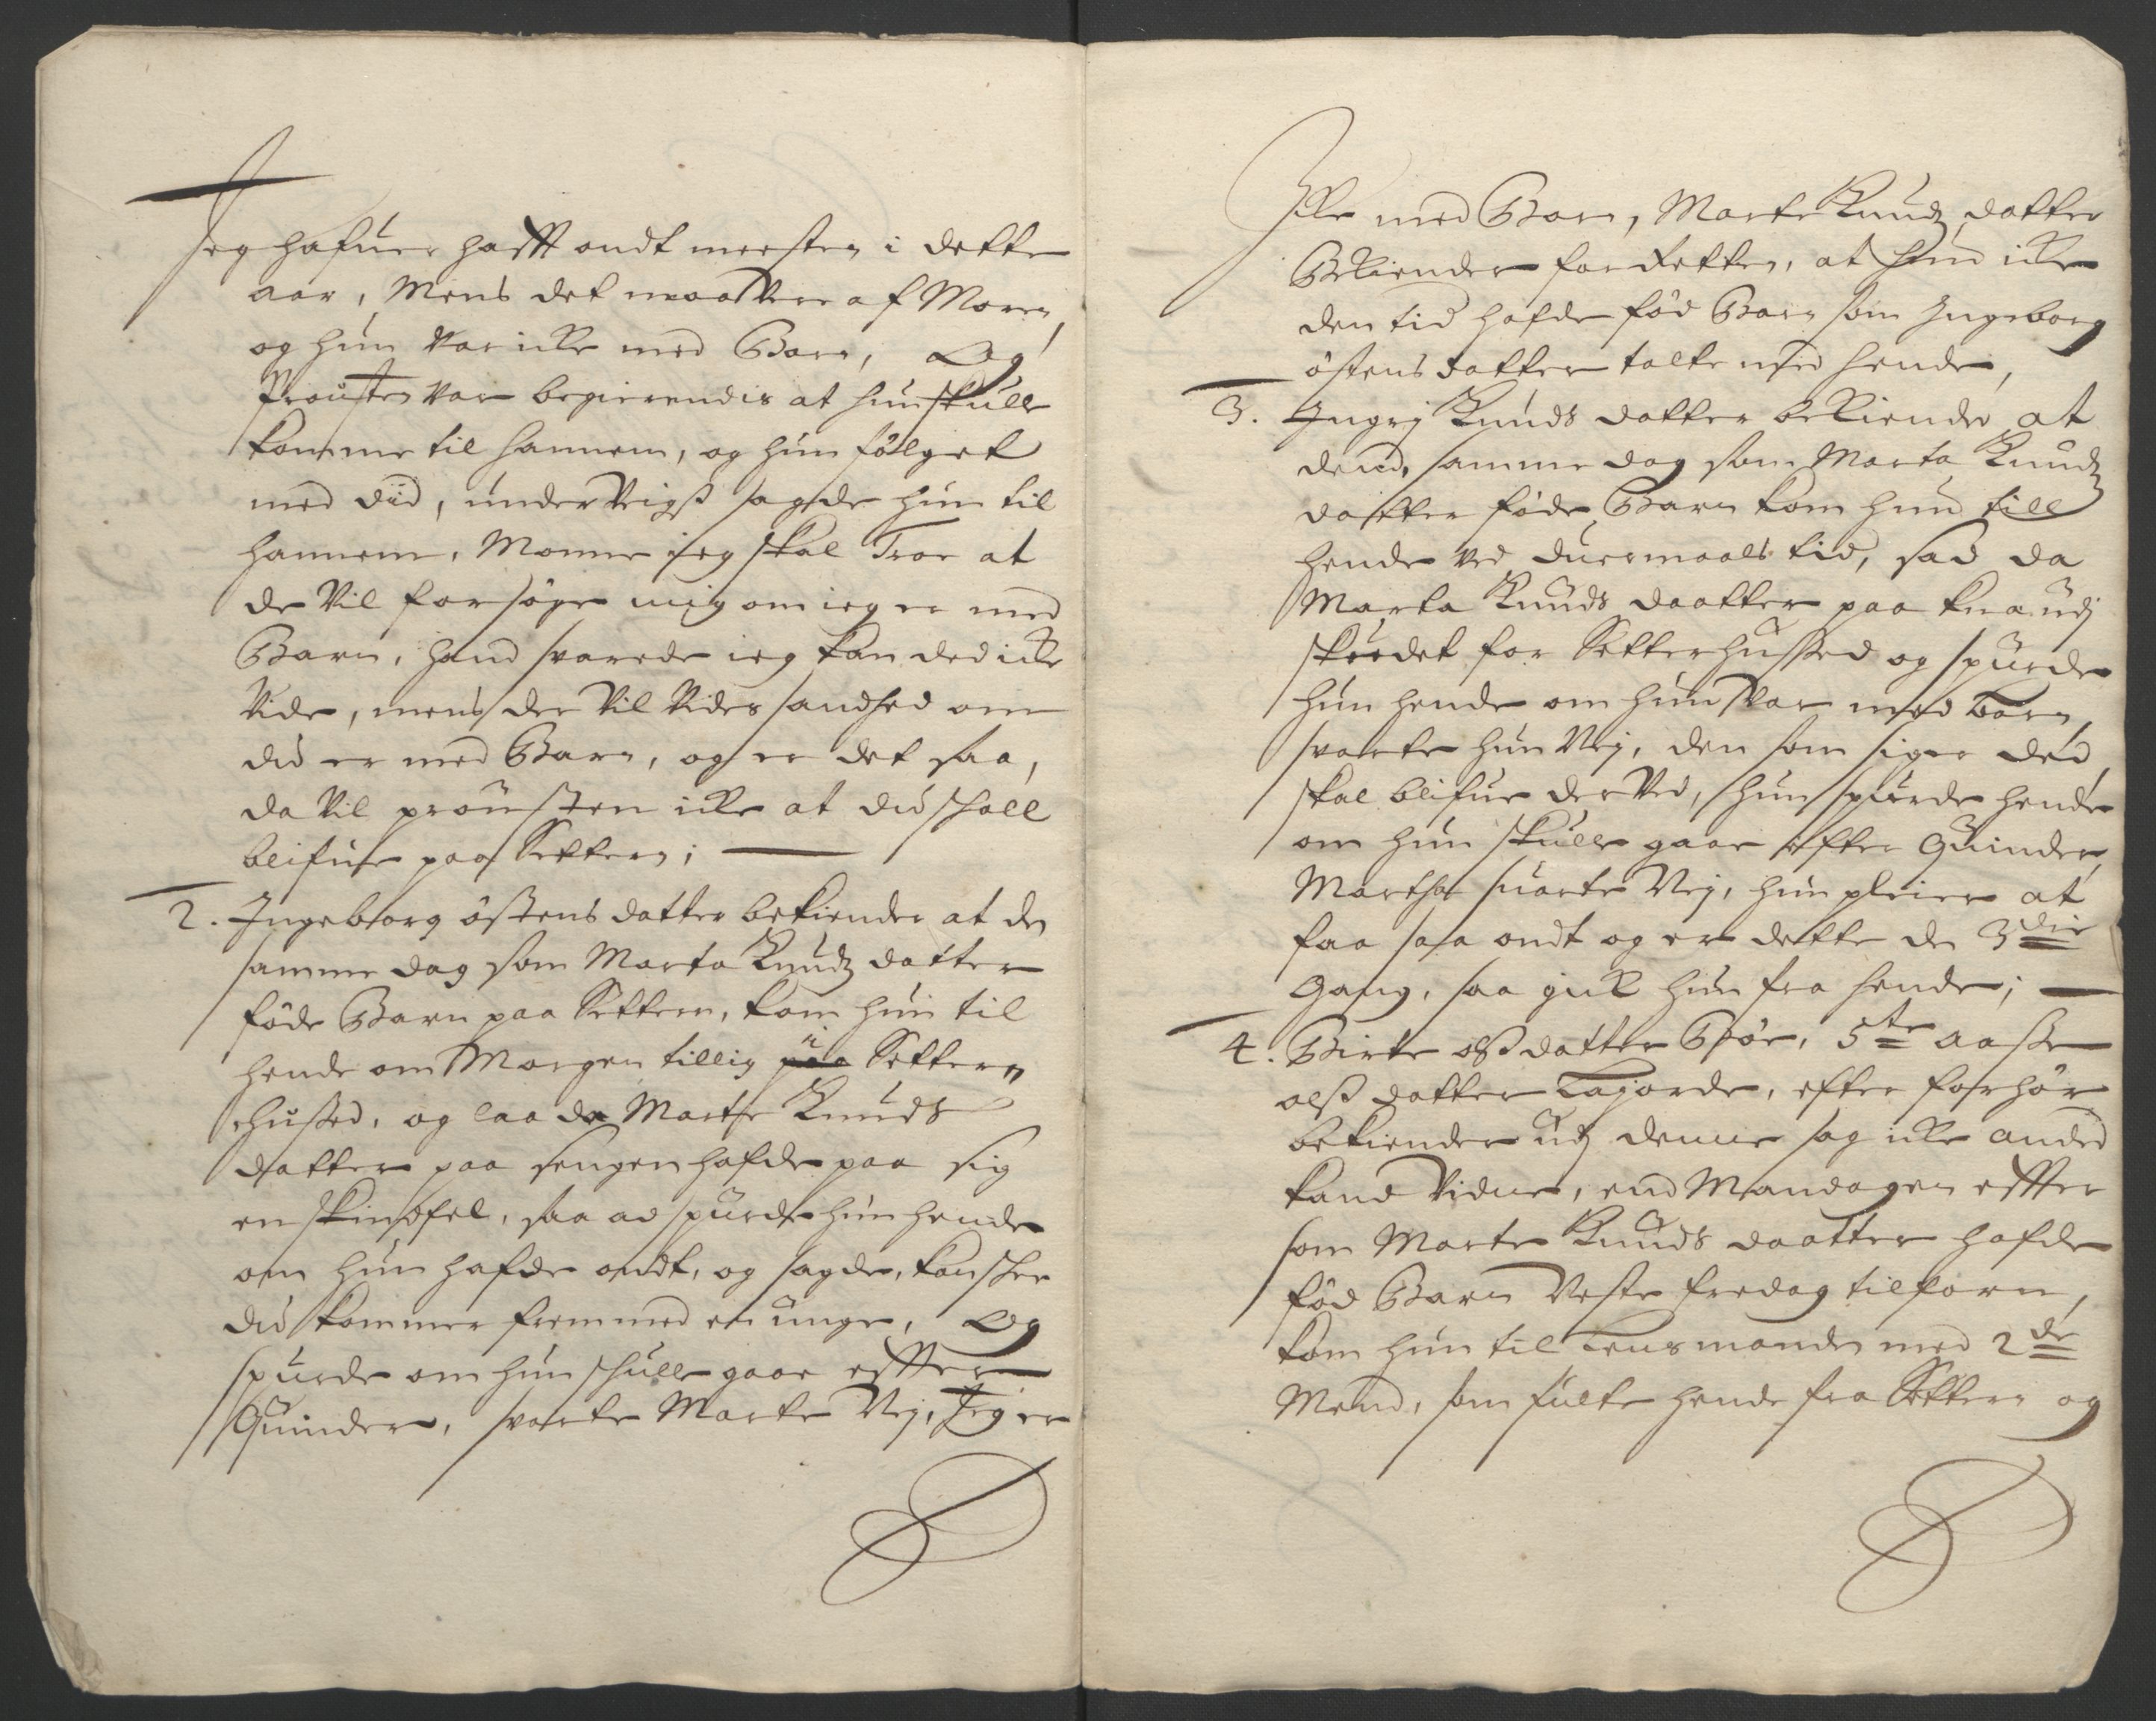 Jeg hafuer hafft ondt meesten i dette
aar, Mens det maa were af Moren,
og hun War icke med Barn, Og
Prousten War begierendis at hun skulle
komme til hannem, og hun fölget
med did, underveigß sagde hun til
hannem, Monne jeg skal Troe at
de Vil forsöge mig om ieg er med
Barn, hand svarede ieg kan ded icke
Vide, mens der Vil Vides sandhed om
du er med Barn, og er det saa,
da Vil prousten icke at du schall
blifue paa Settern;
2. Ingeborg östens datter bekiender at de
samme dag som Marta Knudz datter
föde Barn paa Settern, kom hun til
hende om Morgen tillig paa i Settern
hussed, og laa da Marte Knuds
datter paa sengen hafde paa sig
en skindfel, saa ad spurde hun hende
om hun hafde ondt, og sagde, kanschee
du kommer frem med en unge, Og
spurde om hun schulle gaae effter
Quinder, svarte Marte Nej, Jeg er
Icke med Barn, Marte Knudz datter
Bekiender for Retten, at hun icke
den tid hafde föd Barn som Ingeborg
östens datter talte med hende,
3. Ingrj Knuds datter bekiende at
dend samme dag som Marta Knudz
daatter föde Barn kom hun till
hende ved duermaals tid, sad da
Marta Knuds daatter paa kna udj
skuedet for Setterhussed og spurde
hun hende om hun War med barn,
svarte hun Nej, den som siger ded
skal blifue der Ved, hun spurde hende
om hun skulle gaae efter Quinder,
Martha suarte Nej, hun pleier at
faa saa ondt og er dette de 3die
Gang, saa gick hun fra hende;
4. Birte olß datter Böe, 5te Aasse
olß datter Lagjorde, efter forhör
bekiender udj denne sag icke anded
kand Vidne, end Mandagen effter
som Marte Knuds daatter hafde
föd Barn Neste fredag tilforn,
kom hun til Lensmanden med 2de
Mend, som fulte hende fra Settern og